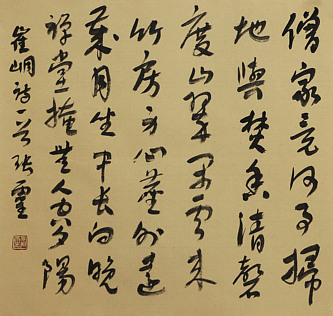 僧家竟何事掃
地與焚香清磬
度山翠閑雲來
竹房身心塵外遠
歲月坐中長向晚
禪堂掩無人空夕陽
崔峒詩一首張靈